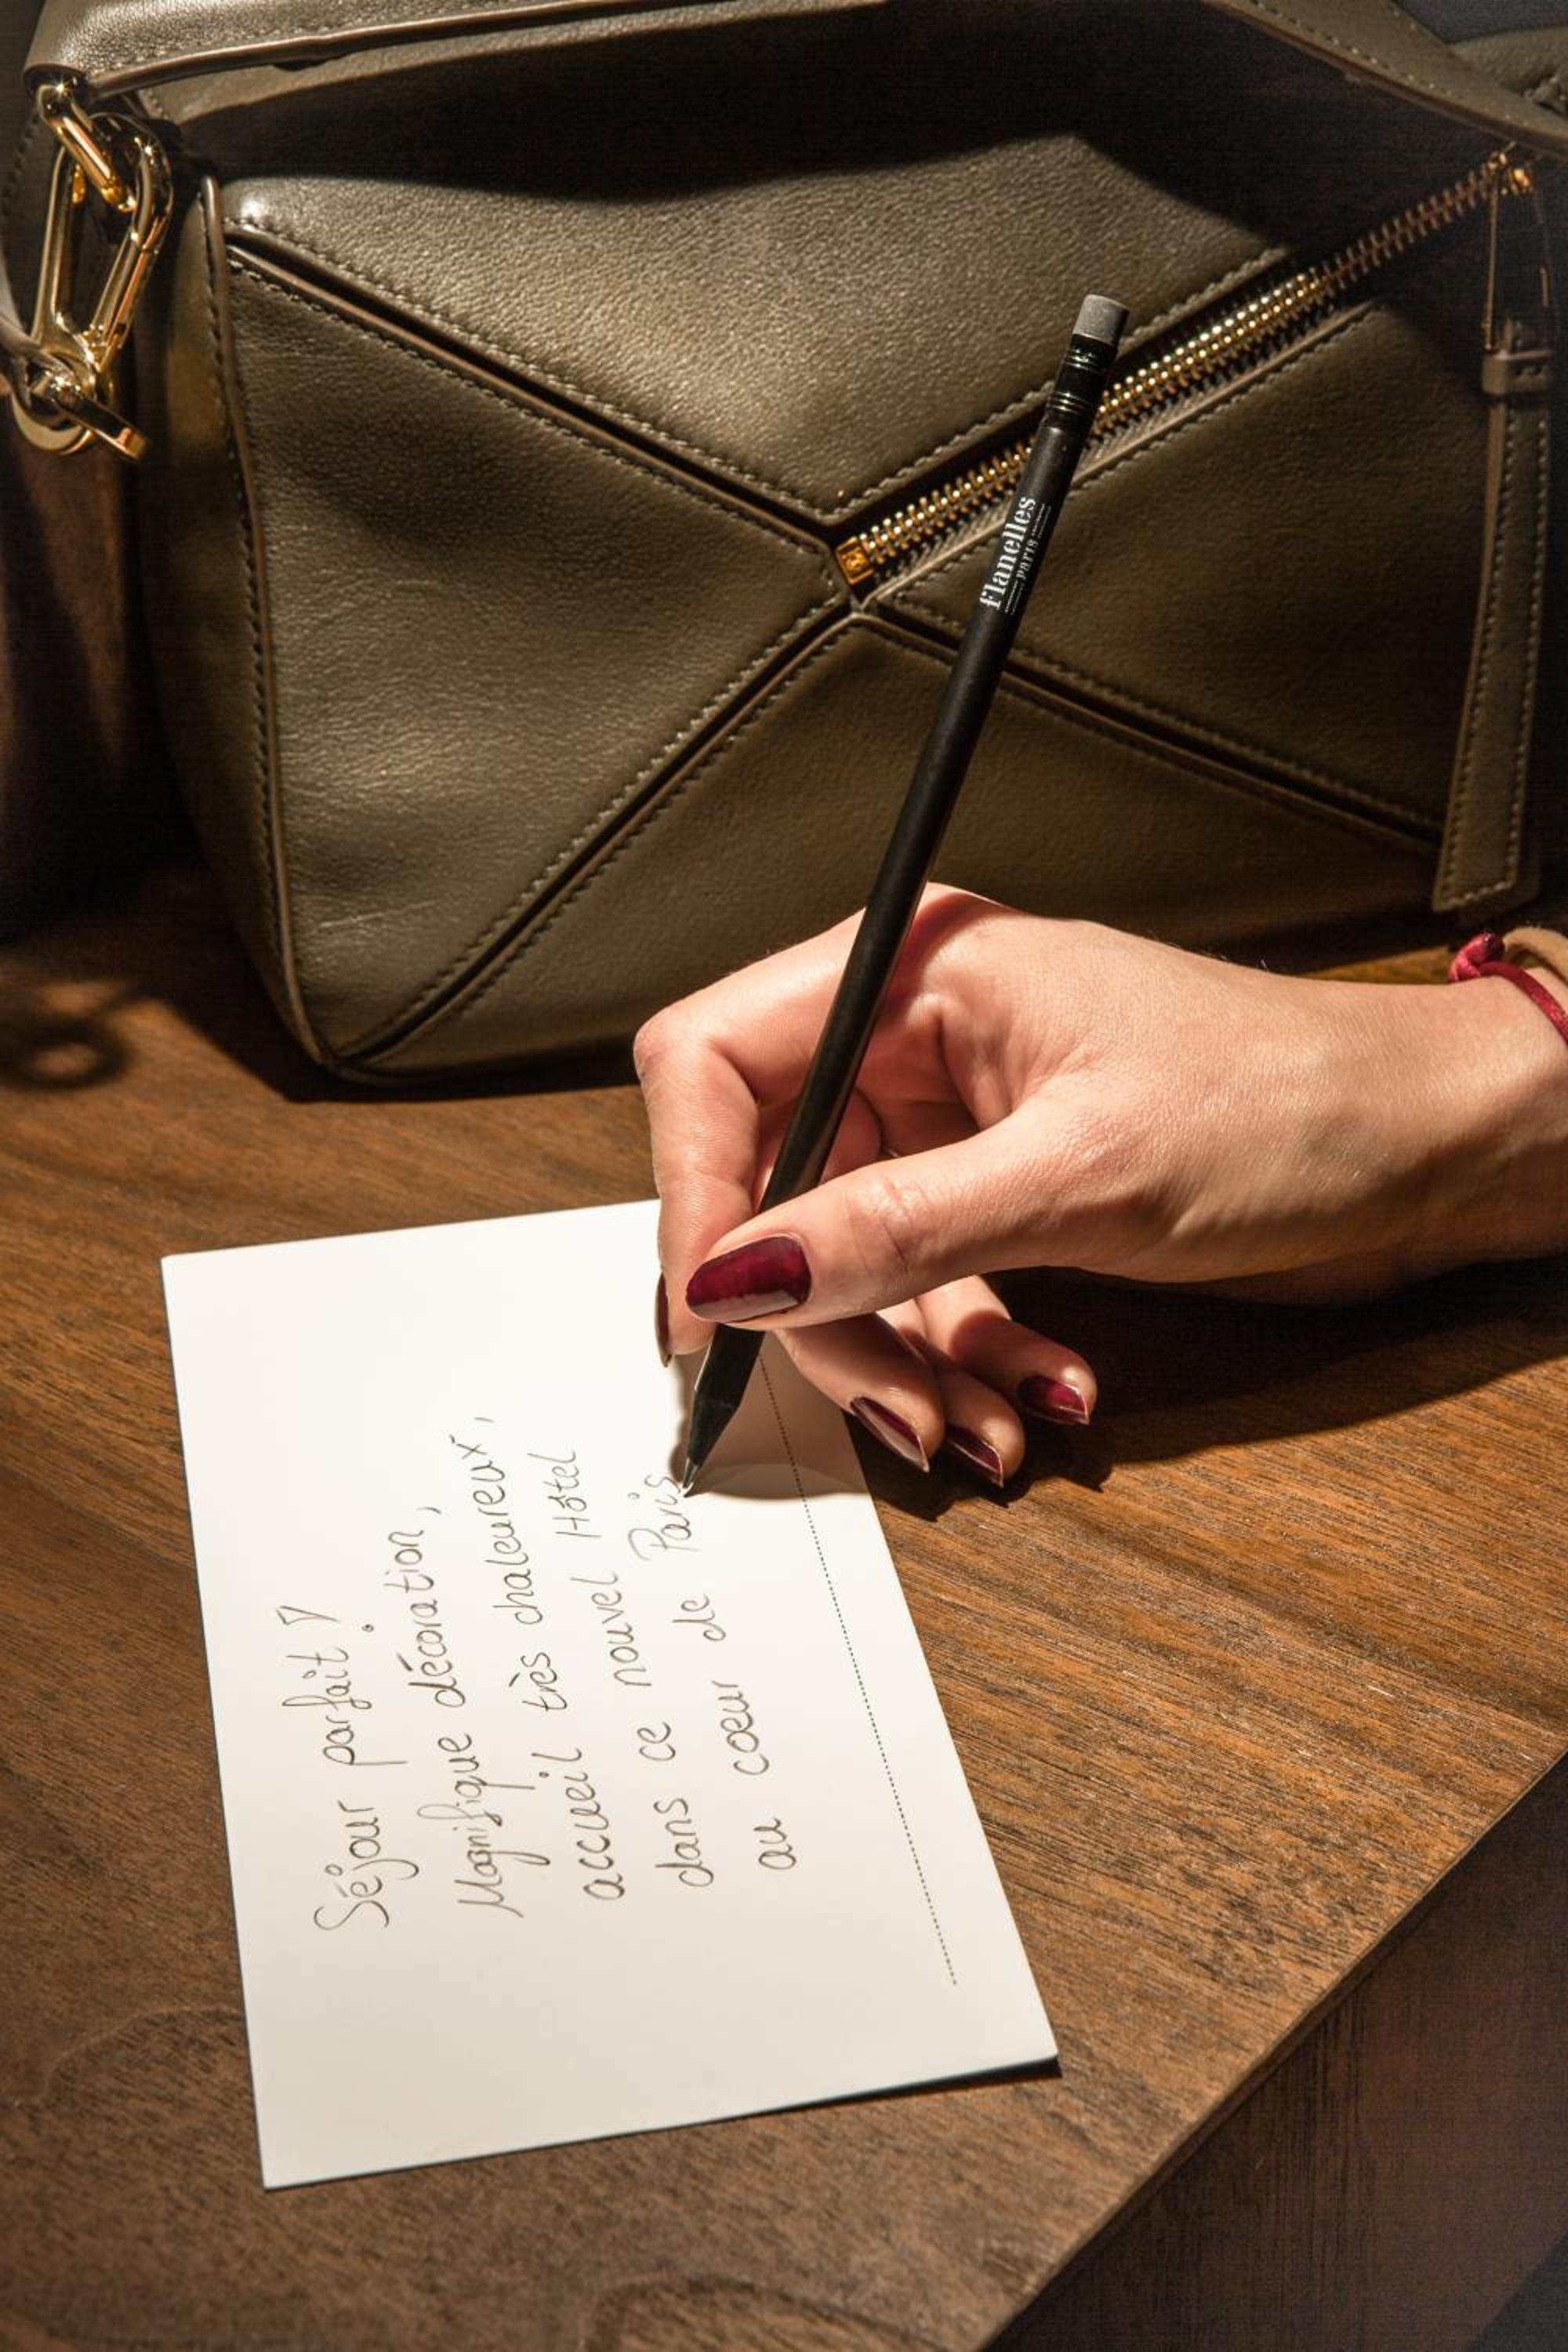 flanelles
paris
Séjour parfait !
Magnifique décoration,
accueil très chaleureux,
dans ce nouvel Hôtel
au coeur de Paris